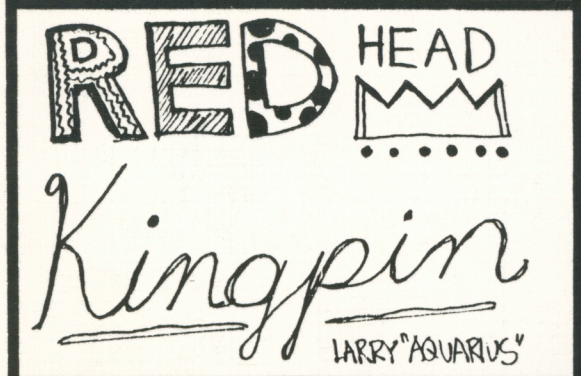 RED HEAD
Kingpin
LARRY "AQUARIUS"